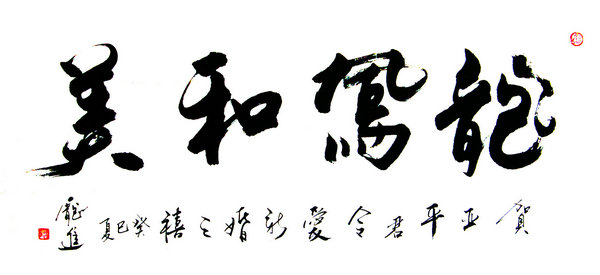 龍鳳和美
賀亚平君令愛新婚之禧癸巳夏
龍進